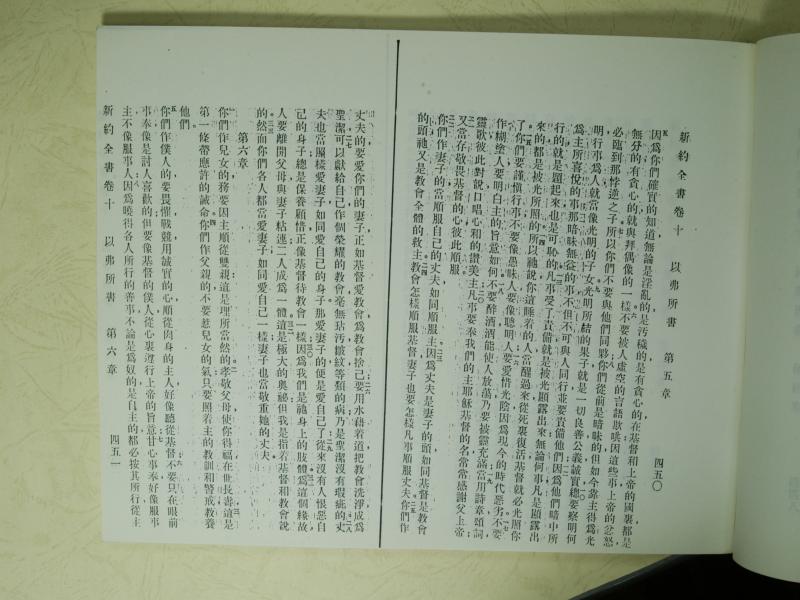 新約全書卷十 以弗所書 第五章 四五〇
因爲你們確實的知道無論是淫亂的是汚穢的是有貪心的在基督和上帝的國裏都是
無分的有貪心的就與拜偶像的一樣不要被人虛空的言語欺哄因這些事上帝的忿怒
必臨到那悖逆之子所以你們不要與他們同夥你們從前是暗昧的但如今靠主得爲光
明行事爲人就當像光明的子女光明所結的果子就是一切良善公義誠實總要察明何
爲主所喜悅的事那暗昧無益的事不但不可與人同行並要責備他們因爲他們暗中所
行的就是題起來也是可恥的凡事受了責備就被光顯露出來無論何事凡是顯露出
來的都是被光所照的所以祂說你這睡着的人當醒過來從死裏復活基督就必光照你
了你們要謹慎行事不要像愚昧人要像聰明人要愛惜光陰因爲現今的時代惡劣不要
作糊塗人要明白主的旨意如何不要醉酒酒能使人放蕩乃要被靈充滿當用詩章頌詞
靈歌彼此對說口唱心和的讚美主凡事要奉我們的主耶穌基督的名常常感謝父上帝
又當存敬畏基督的心彼此順服
你們作妻子的當順服自己的丈夫如同順服主因爲丈夫是妻子的頭如同基督是教會
的頭祂又是教會全體的救主教會怎樣順服基督妻子也要怎樣凡事順服丈夫你們作
丈夫的要愛你們的妻子正如基督愛教會爲教會捨己要用水藉着道把教會洗淨成爲
聖潔可以獻給自己作個榮耀的教會毫無玷汚皺紋等類的病乃是聖潔沒有瑕疵的丈
夫也當照樣愛妻子如同愛自己的身子那愛妻子的便是愛自己了從來沒有人恨惡自
己的身子總是保養顧惜正像基督待教會一樣因爲我們是祂身上的肢體爲這個緣故
人要離開父母與妻子粘連二人成爲一體這是極大的奧祕但我是指着基督和教會說
的然而你們各人都當愛妻子如同愛自己一樣妻子也當敬重她的丈夫
第六章
你們作兒女的務要因主順從雙親這是理所當然的孝敬父母使你得福在世長壽這是
第一條帶應許的誡命你們作父親的不要惹兒女的氣只要照着主的教訓和警戒教養
他們
你們作僕人的要畏懼戰兢用誠實的心順從肉身的主人好像聽從基督不要只在眼前
事奉像是討人喜歡的但要像基督的僕人從心裏遵行上帝的旨意甘心事奉好像服事
主不像服事人因爲曉得各人所行的善事不論是爲奴的是自主的都必按其所行從主
新約全書卷十 以弗所書 第六章 四五一